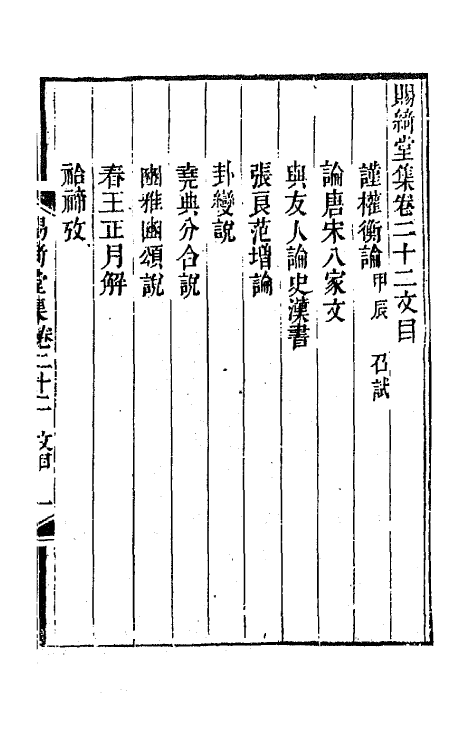 賜綺堂集卷二十二文目
謹權衡論甲辰 召試
論唐宋八家文
與友人論史漢書
張良范增論
卦變說
堯典分合說
豳雅豳頌說
春王正月解
祫禘攷
賜綺堂集卷二十二 文目 一